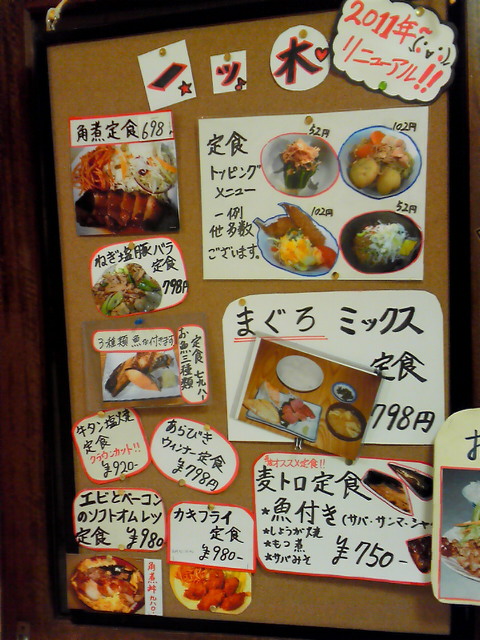 一ッ木
2011年
リニューアル!!
角煮定食698
定食
トッピング
メニュー
一例
他多数
ございます。
52円
102円
102円
52円
ねぎ塩豚バラ
定食
798円
3種類魚が付きます
お魚三種類
定食 七九八-
まぐろ ミックス
定食
798円
牛タン塩焼
定食
クラウンカット!!
¥920-
あらびき
ウィンナー定食
¥798円
エビとベーコン
のソフトオムレツ
定食 ¥980
カキフライ
定食
¥980-
オススメ定食!!
麦トロ定食
★魚付き(サバ・サンマ・シャ
★しょうが焼
★もつ煮
★サバみそ
¥750-
角煮丼
お